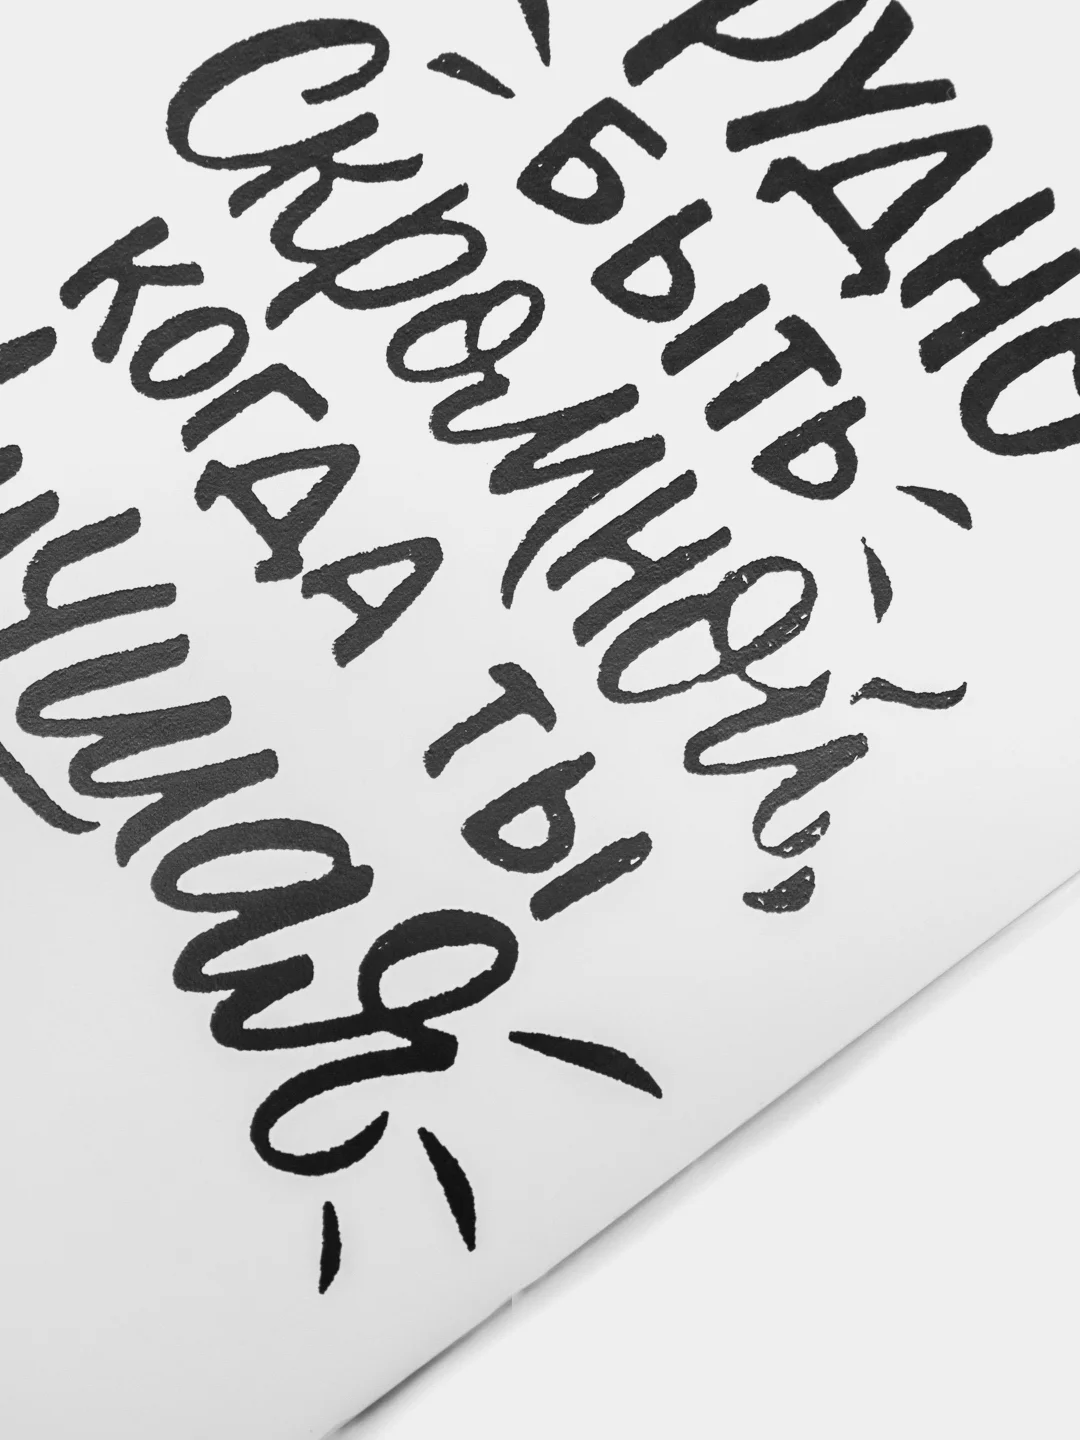 РУДНО
БЫТЬ
Скромной,
КОГДА ТЫ
учшая